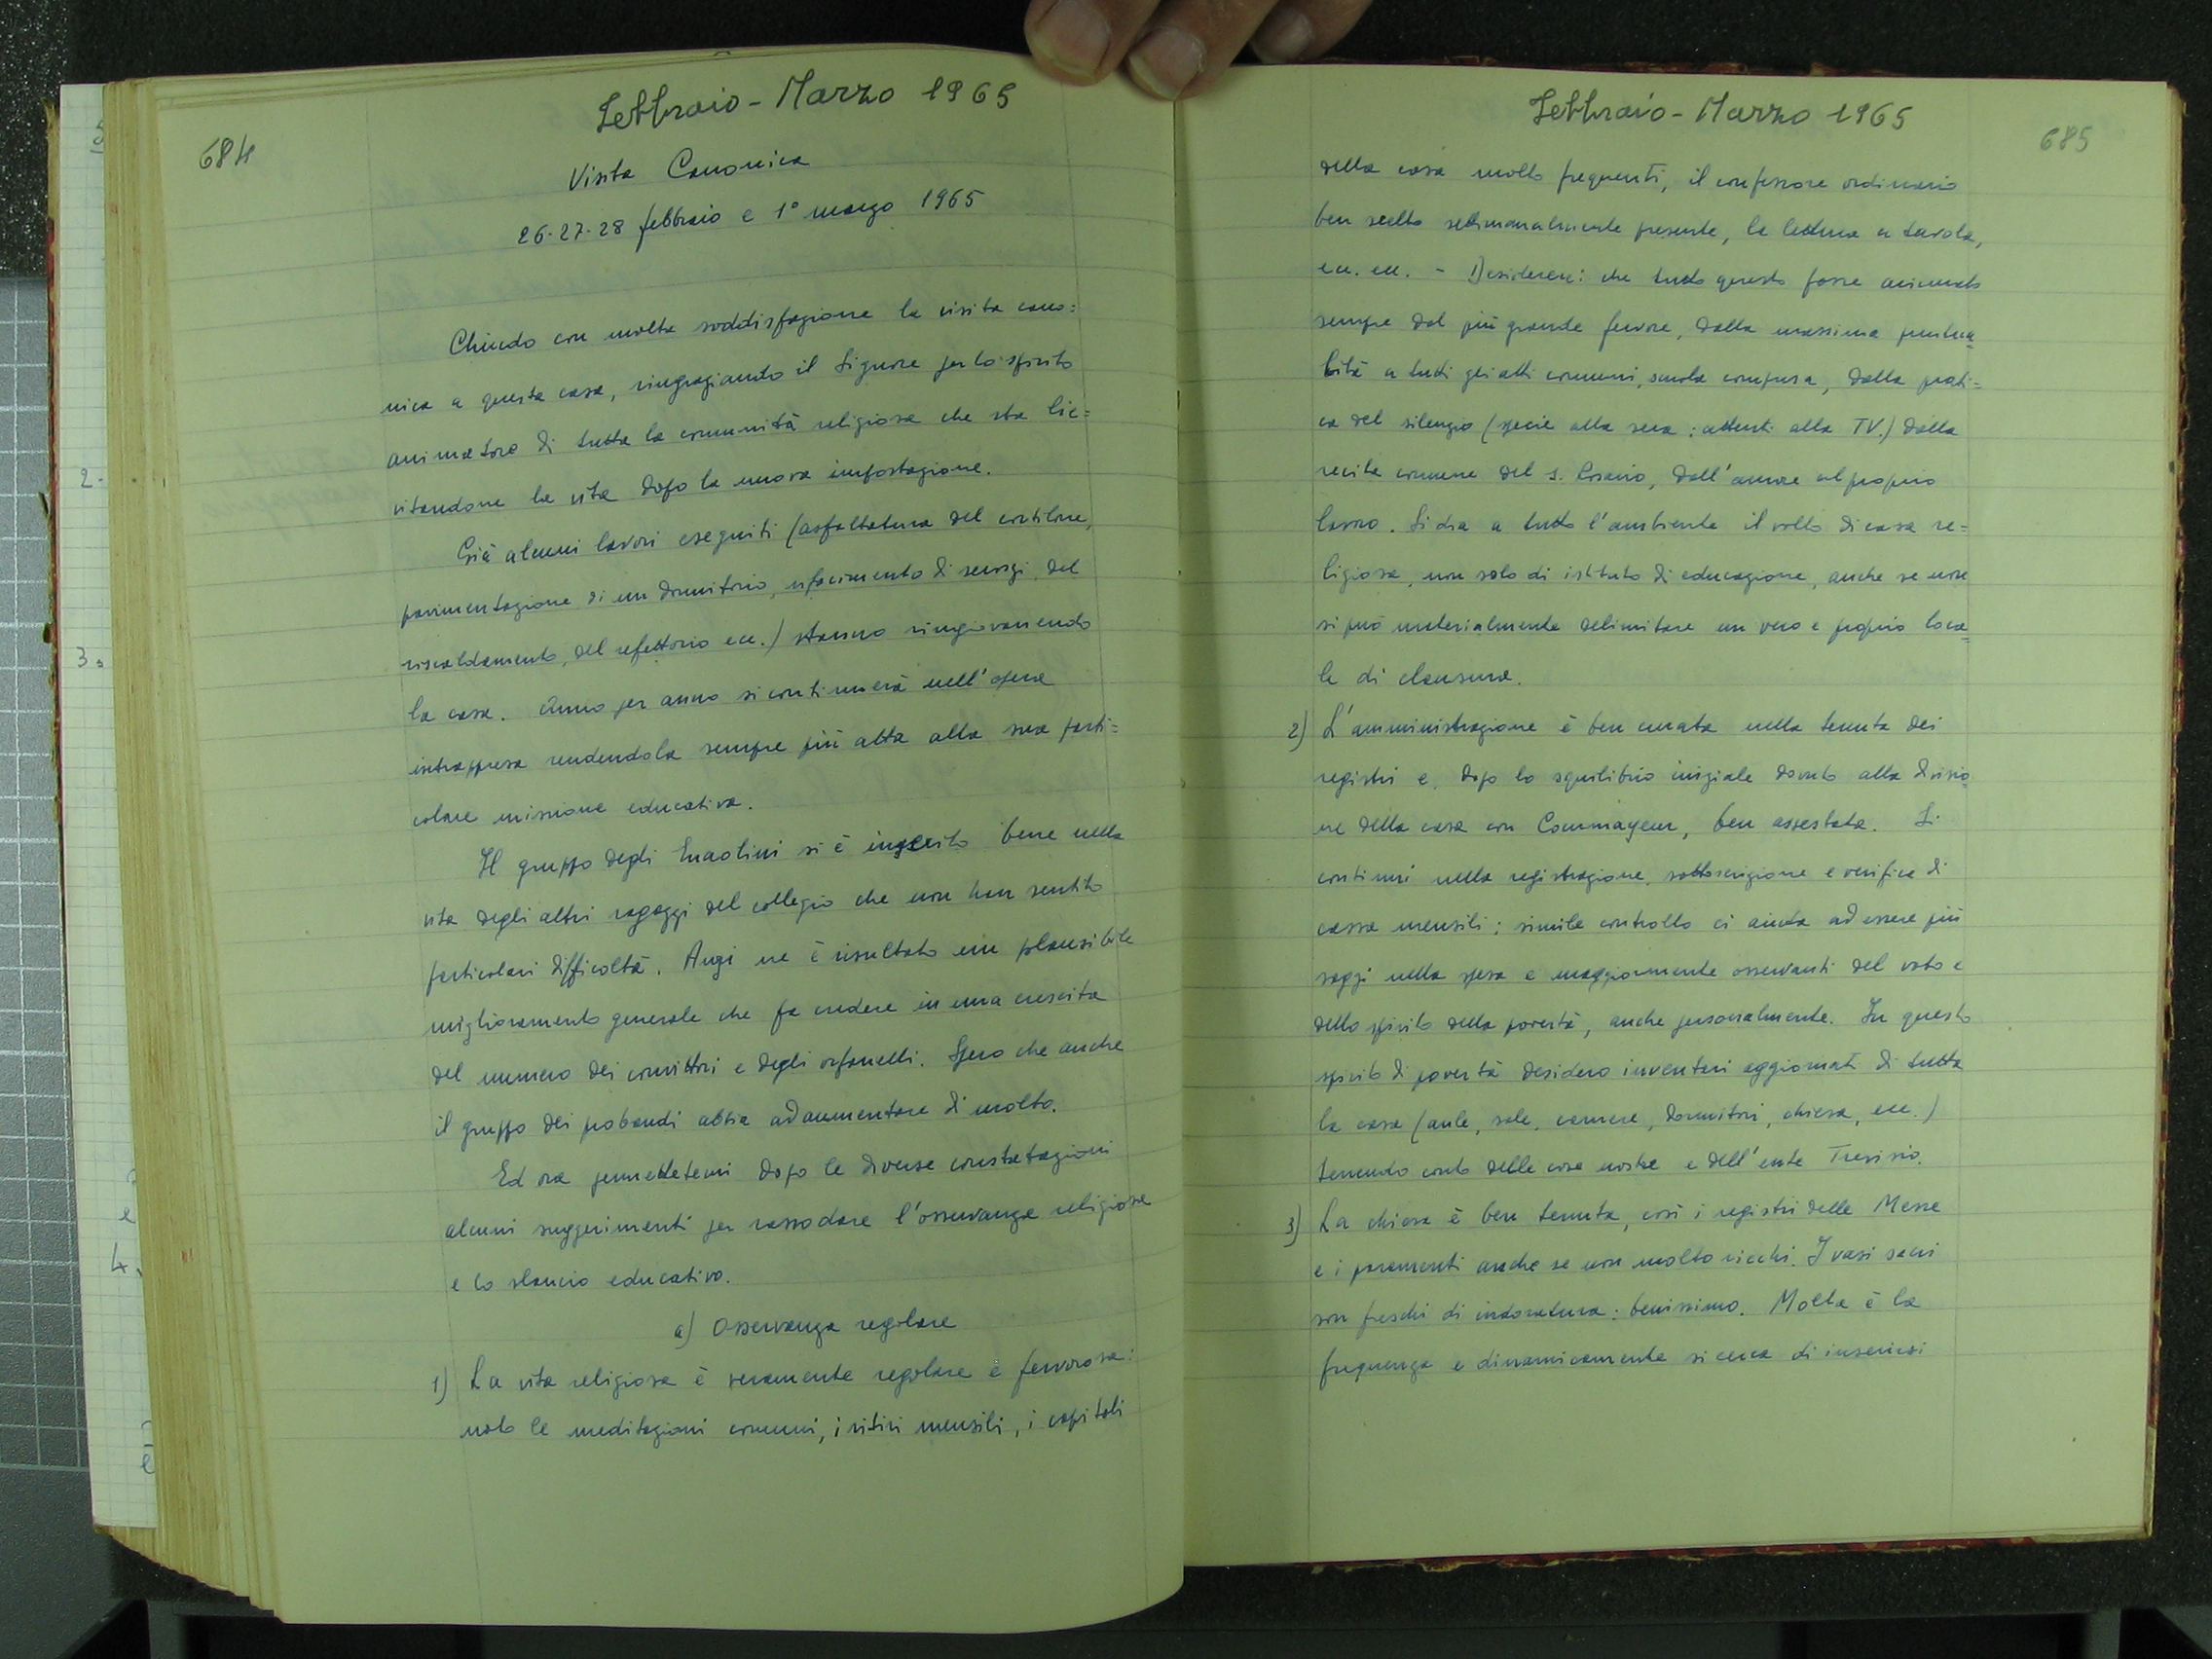 684
Febbraio - Marzo 1965
Visita Canonica
26-27-28 febbraio e 1° marzo 1965
Chiudo con molta soddisfazione la visita cano=
nica a questa casa, ringraziando il Signore per lo spirito
animatore di tutta la comunità religiosa che sta lie=
vitandone la vita dopo la nuova impostazione.
Già alcuni lavori eseguiti (asfaltatura del cortilone,
pavimentazione di un dormitorio, rifacimento di servizi, del
riscaldamento, del refettorio ecc.) stanno ringiovanendo
la casa. Anno per anno si continuerà nell'opera
intrappresa rendendola sempre più atta alla sua parti=
colare missione educativa.
Il gruppo degli Enaolini si è inserito bene nella
vita degli altri ragazzi del collegio che non han sentito
particolari difficoltà. Anzi ne è risultato un plausibile
miglioramento generale che fa credere in una crescita
del numero dei convittori e degli orfanelli. Spero che anche
il gruppo dei probandi abbia ad aumentare di molto.
Ed ora permettetemi dopo le diverse constatazioni
alcuni suggerimenti per rassodare l'osservanza religiosa
e lo slancio educativo.
a) Osservanza regolare
1) La vita religiosa è veramente regolare e fervorosa:
noto le meditazioni comuni, i ritiri mensili, i capitoli
Febbraio - Marzo 1965
685
della casa molto frequenti, il confessore ordinario
ben scelto settimanalmente presente, la lettura a tavola,
ecc. ecc. - Desidererei che tutto questo fosse animato
sempre dal più grande fervore, dalla massima puntua=
lità a tutti gli atti comuni, scuola compresa, dalla prati=
ca del silenzio (specie alla sera: attenti alla TV.) dalla
recita comune del s. Rosario, dall'amore al proprio
lavoro. Si dia a tutto l'ambiente il volto di casa re=
ligiosa, non solo di istituto di educazione, anche se non
si può materialmente delimitare un vero e proprio loca=
le di clausura.
2) L'amministrazione è ben curata nella tenuta dei
registri e, dopo lo squilibrio iniziale dovuto alla divisio=
ne della casa con Courmayeur, ben assestata. Si
continui nella registrazione, sottoscrizione e verifica di
cassa mensili; simile controllo ci aiuta ad essere più
saggi nella spesa e maggiormente osservanti del voto e
dello spirito della povertà, anche personalmente. In questo
spirito di povertà desidero inventari aggiornati di tutta
la casa (aule, sale, camere, dormitori, chiesa, ecc.)
tenendo conto delle cose nostre e dell'ente Tresisio.
3) La chiesa è ben tenuta, così i registri delle Messe
e i paramenti anche se non molto ricchi. I vasi sacri
son freschi di indoratura: benissimo. Molta è la
frequenza e dinamicamente si cerca di inserirsi